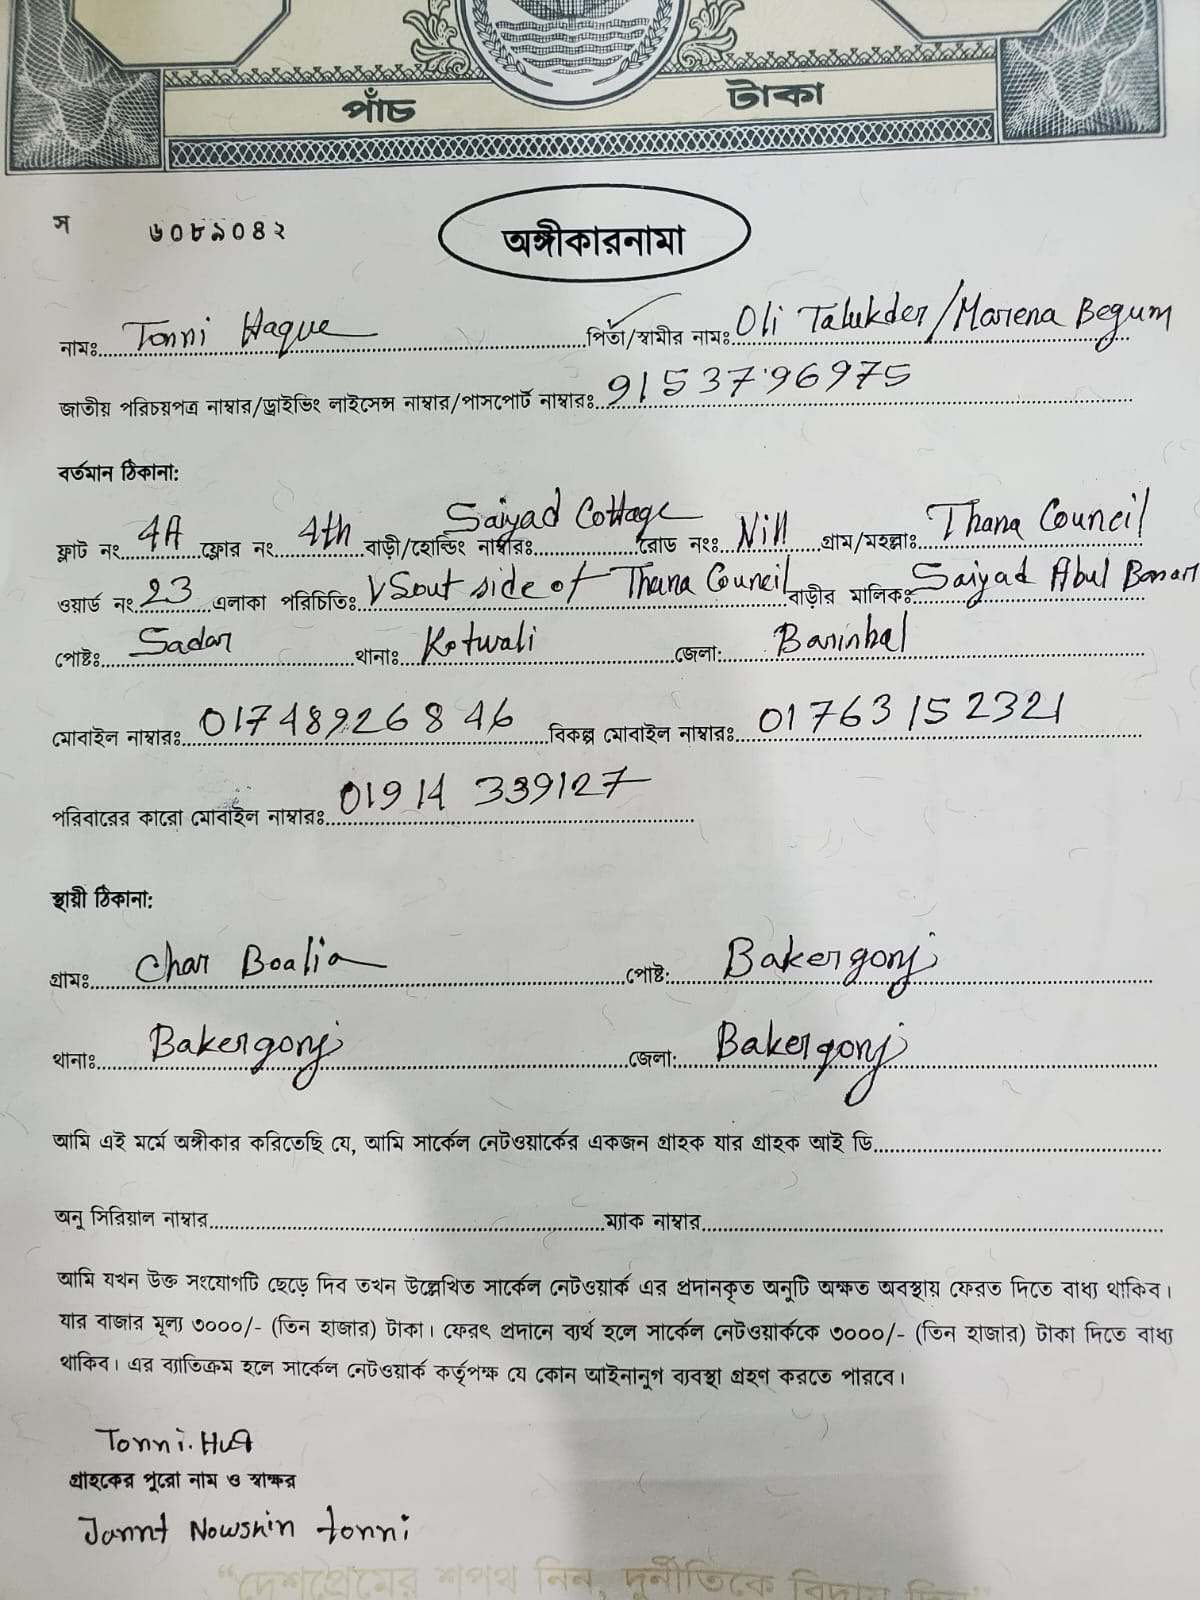 পাঁচ টাকা
স ৬০৮৯০৪২
অঙ্গীকারনামা
নামঃ Tonni Haque পিতা/স্বামীর নাম: Oli Talukder/Marena Begum
জাতীয় পরিচয়পত্র নাম্বার/ড্রাইভিং লাইসেন্স নাম্বার/পাসপোর্ট নাম্বারঃ 9153796975
বর্তমান ঠিকানা:
ফ্লাট নং 4A ফ্লোর নং 4th বাড়ী/হোল্ডিং নাম্বারঃ Saiyad Cottage রোড নংঃ Nill গ্রাম/মহল্লাঃ Thana Council
ওয়ার্ড নং 23 এলাকা পরিচিতিঃ Sout side of Thana Council বাড়ীর মালিকঃ Saiyad Abul
পোষ্টঃ Sadar থানাঃ Kotwali জেলা:
মোবাইল নাম্বারঃ 01748926846 বিকল্প মোবাইল নাম্বারঃ 01763152321
পরিবারের কারো মোবাইল নাম্বারঃ 01914 339127
স্থায়ী ঠিকানা:
গ্রামঃ Char Boalia পোষ্ট: Bakergonj
থানাঃ Bakergonj জেলা: Bakergonj
আমি এই মর্মে অঙ্গীকার করিতেছি যে, আমি সার্কেল নেটওয়ার্কের একজন গ্রাহক যার গ্রাহক আই ডি
অনু সিরিয়াল নাম্বার ম্যাক নাম্বার
আমি যখন উক্ত সংযোগটি ছেড়ে দিব তখন উল্লেখিত সার্কেল নেটওয়ার্ক এর প্রদানকৃত অনুটি অক্ষত অবস্থায় ফেরত দিতে বাধ্য থাকিব।
যার বাজার মূল্য ৩০০০/- (তিন হাজার) টাকা। ফেরৎ প্রদানে ব্যর্থ হলে সার্কেল নেটওয়ার্ককে ৩০০০/- (তিন হাজার) টাকা দিতে বাধ্য
থাকিব। এর ব্যাতিক্রম হলে সার্কেল নেটওয়ার্ক কর্তৃপক্ষ যে কোন আইনানুগ ব্যবস্থা গ্রহণ করতে পারবে।
Tonni. Huq
গ্রাহকের পুরো নাম ও স্বাক্ষর
Jannt Nowshin tonni
“দেশপ্রেমের শপথ নিন, দুর্নীতিকে বিদায় দিন”